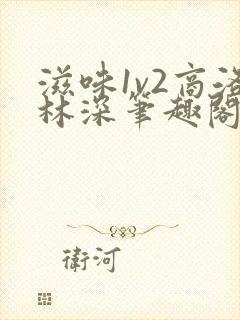 滋味1v2高洛
林深笔趣阁
衛河